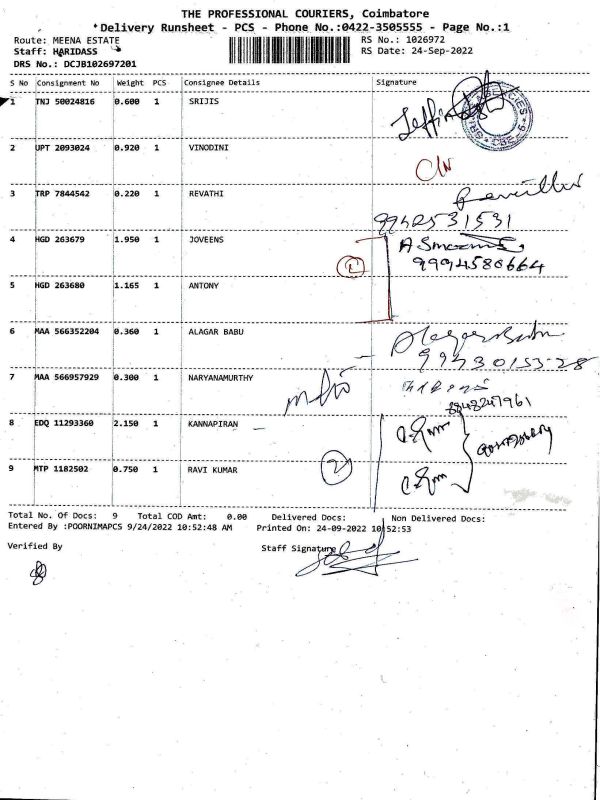 THE PROFESSIONAL COURIERS, Coimbatore
Delivery Runsheet - PCS - Phone No.:0422-3505555 - Page No.:1
Route: MEENA ESTATE RS No.: 1026972
Staff: HARIDASS RS Date: 24-Sep-2022
DRS No.: DCJB102697201
S No Consignment No Weight PCS Consignee Details Signature
1 TNJ 50024816 0.600 1 SRIJIS
2 UPT 2093024 0.920 1 VINODINI
3 TRP 7844542 0.220 1 REVATHI
9942531531
4 HGD 263679 1.950 1 JOVEENS
9994580664
5 HGD 263680 1.165 1 ANTONY
6 MAA 566352204 0.360 1 ALAGAR BABU Alagar Babu
7 MAA 566957929 0.300 1 NARYANAMURTHY
8 EDQ 11293360 2.150 1 KANNAPIRAN
9 MTP 1182502 0.750 1 RAVI KUMAR 2
Total No. Of Docs: 9 Total COD Amt: 0.00 Delivered Docs: Non Delivered Docs:
Entered By :POORNIMAPCS 9/24/2022 10:52:48 AM Printed On: 24-09-2022 10:52:53
Verified By Staff Signature